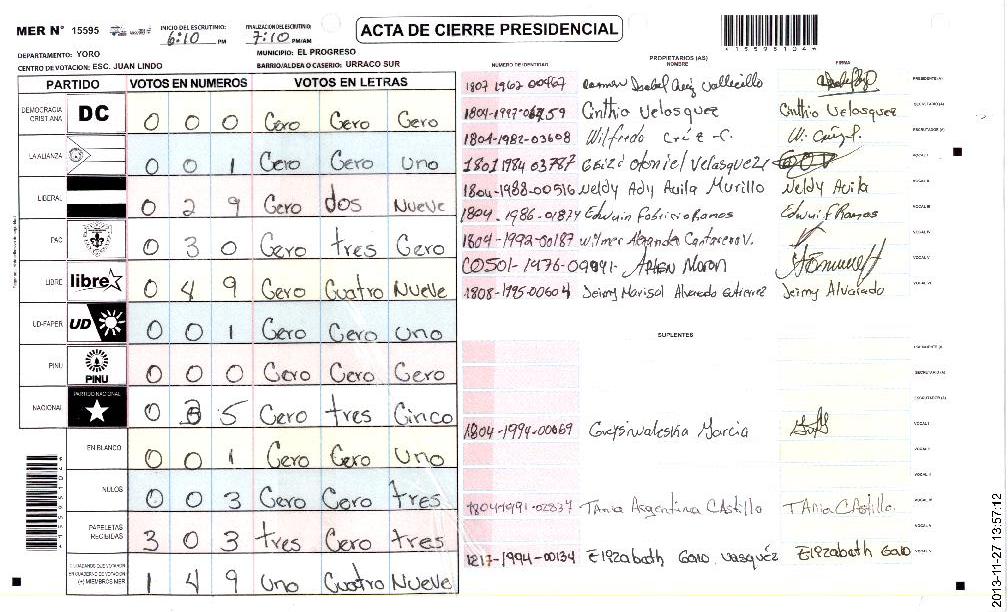 MER N° 15595
INICIO DEL ESCRUTINIO: 6:10 PM
FINALIZACION DEL ESCRUTINIO: 7:10 PM/AM
ACTA DE CIERRE PRESIDENCIAL
DEPARTAMENTO: YORO
MUNICIPIO: EL PROGRESO
CENTRO DE VOTACION: ESC. JUAN LINDO
BARRIO/ALDEA O CASERIO: URRACO SUR
PARTIDO VOTOS EN NUMEROS VOTOS EN LETRAS
DEMOCRACIA CRISTIANA DC 0 0 0 Cero Cero Cero
LA ALIANZA 0 0 1 Cero Cero uno
LIBERAL 0 2 9 Cero dos Nueve
PAC 0 3 0 Cero tres Cero
LIBRE libre 0 4 9 Cero Cuatro Nueve
UD-FAPER UD 0 0 1 Cero Cero uno
PINU PINU 0 0 0 Cero Cero Cero
NACIONAL PARTIDO NACIONAL 0 3 5 Cero tres Cinco
EN BLANCO 0 0 1 Cero Cero uno
NULOS 0 0 3 Cero Cero tres
PAPELETAS RECIBIDAS 3 0 3 tres Cero tres
CIUDADANOS QUE VOTARON EN CUADERNO DE VOTACION (+) MIEMBROS MER 1 4 9 uno Cuatro Nueve
PROPIETARIOS (AS)
NUMERO DE IDENTIDAD NOMBRE FIRMA
1807 1962 00467 Ramon Isabel Vallecillo PRESIDENTE(A)
Cinthia Velasquez Cinthia Velasquez SECRETARIO(A)
1804-1982-03608 Wilfredo ESCRUTADOR(A)
1801 1984 03787 Velasquez VOCAL I
1804-1988-00516 Neldy Ady Avila Murillo Neldy Avila VOCAL II
1804-1986-01874 Edwuin Fabricio Ramos Edwuin F Ramos VOCAL III
1804-1992-00187 Wilmer Alexander Cantarero V. VOCAL IV
VOCAL V
1808-1995-00604 Jeimy Marisol Alvarado Gutierrez Jeimy Alvarado VOCAL VI
SUPLENTES
PRESIDENTE(A)
SECRETARIO(A)
ESCRUTADOR(A)
1804-1994-00069 VOCAL I
VOCAL II
1804-1991-02837 TAnia Argentina CAstillo TAnia CAstillo. VOCAL III
VOCAL IV
1217-1994-00134 Elizabath Vasquéz Elizabath VOCAL V
2013-11-27 13:57:12